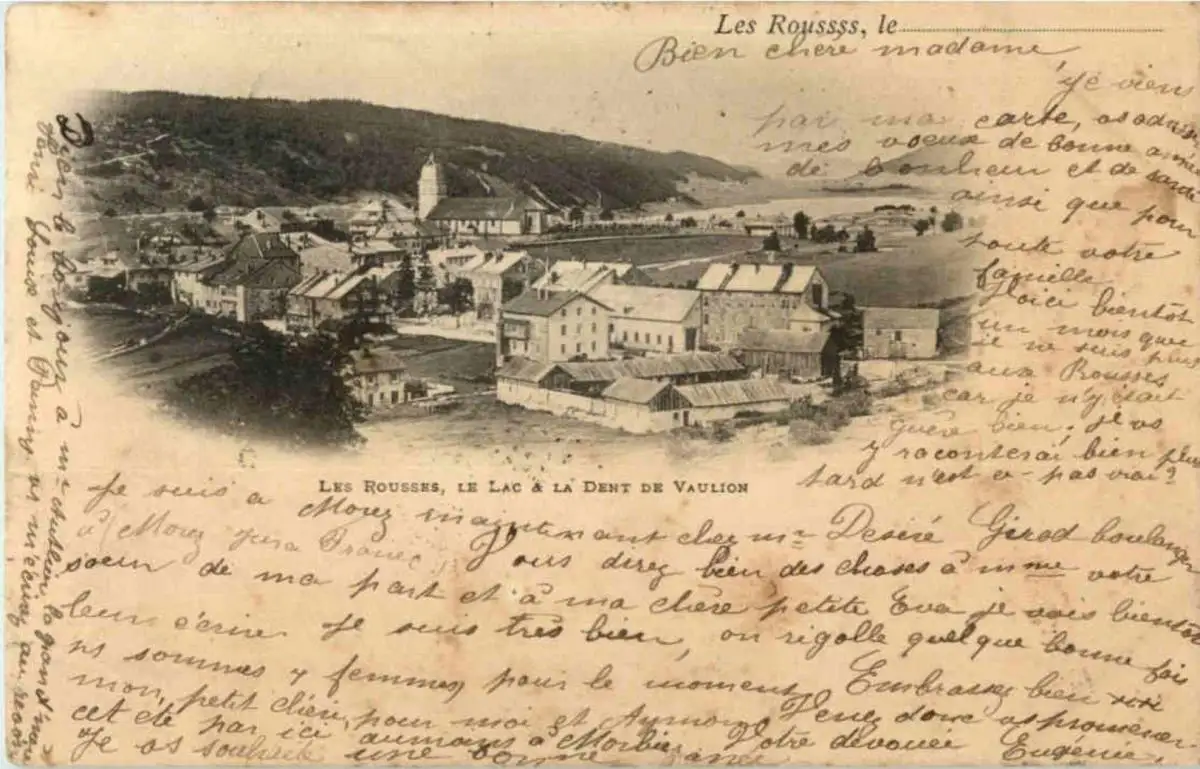 Les Roussss, le
Bien chère madame,
Je viens
par ma carte, vs adr
mes voeux de bonne année
de bonheur et de santé
ainsi que pour
toute votre
famille
Voici bientôt
un mois que
je ne suis plus
aux Rousses
car je n'y était
guère bien, je vs
y raconterai bien plus
tard n'est ce-pas vrai?
LES ROUSSES, LE LAC & LA DENT DE VAULION
Je suis a Morez maintenant chez mr Desiré Girod boulanger
à Morez Jura France Vous direz bien des choses à mme votre
soeur de ma part et à ma chère petite Eva je vais bientôt
leur écrire. Je suis très bien, on rigolle quelque bonne fois
ns sommes 4 femmes pour le moment Embrassez bien
mon petit chéri pour moi et Aymon Venez donc vs promener
cet été par ici aumoins à Morbier Votre dévouée Eugenie.
Je vs souhaite une bonne année
Bien le bonjour à me la grand'mère
Louise et Fanny vs m'écrirez au revoir